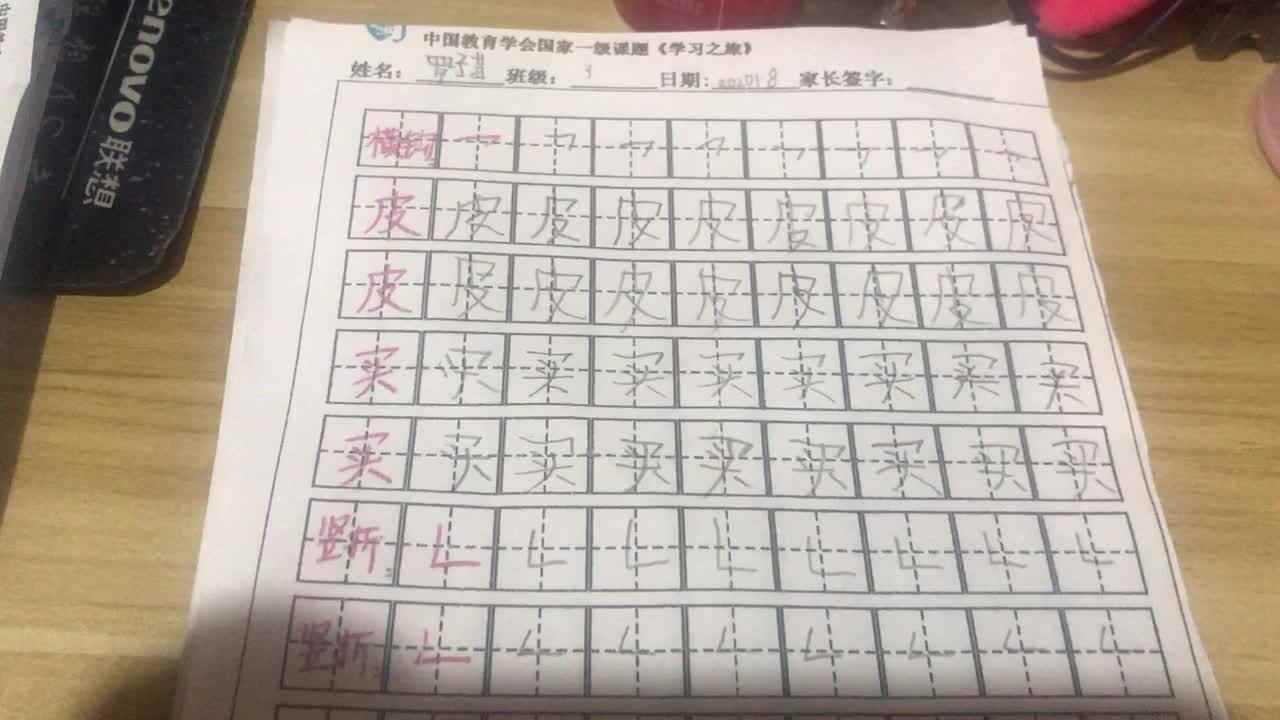 中国教育学会国家一级课题《学习之旅》
姓名： 班级：3 日期: 家长签字：
横钩
皮 皮 皮 皮 皮 皮 皮 皮 皮
皮 皮 皮 皮 皮 皮 皮 皮 皮
买 买 买 买 买 买 买 买 买
买 买 买 买 买 买 买 买 买
竖折
竖折
enovo联想